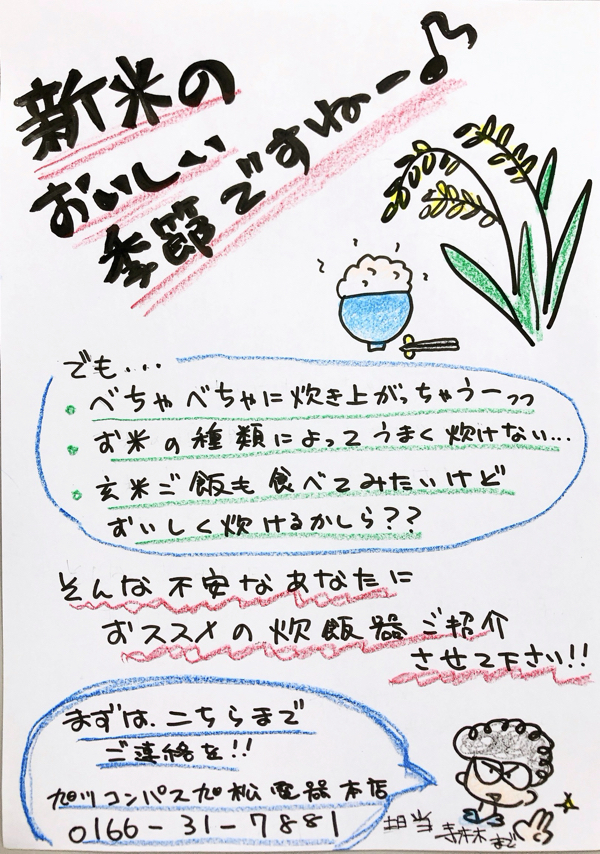 新米の
おいしい
季節ですねー♪
でも・・・
・べちゃべちゃに炊き上がっちゃうーっっ
・お米の種類によってうまく炊けない…
・玄米ご飯も食べてみたいけど
おいしく炊けるかしら??
そんな不安なあなたに
おススメの炊飯器ご紹介
させて下さい!!
まずは、こちらまで
ご連絡を!!
カマツコンパスカ松電器本店
0166-31-7881
担当
まで